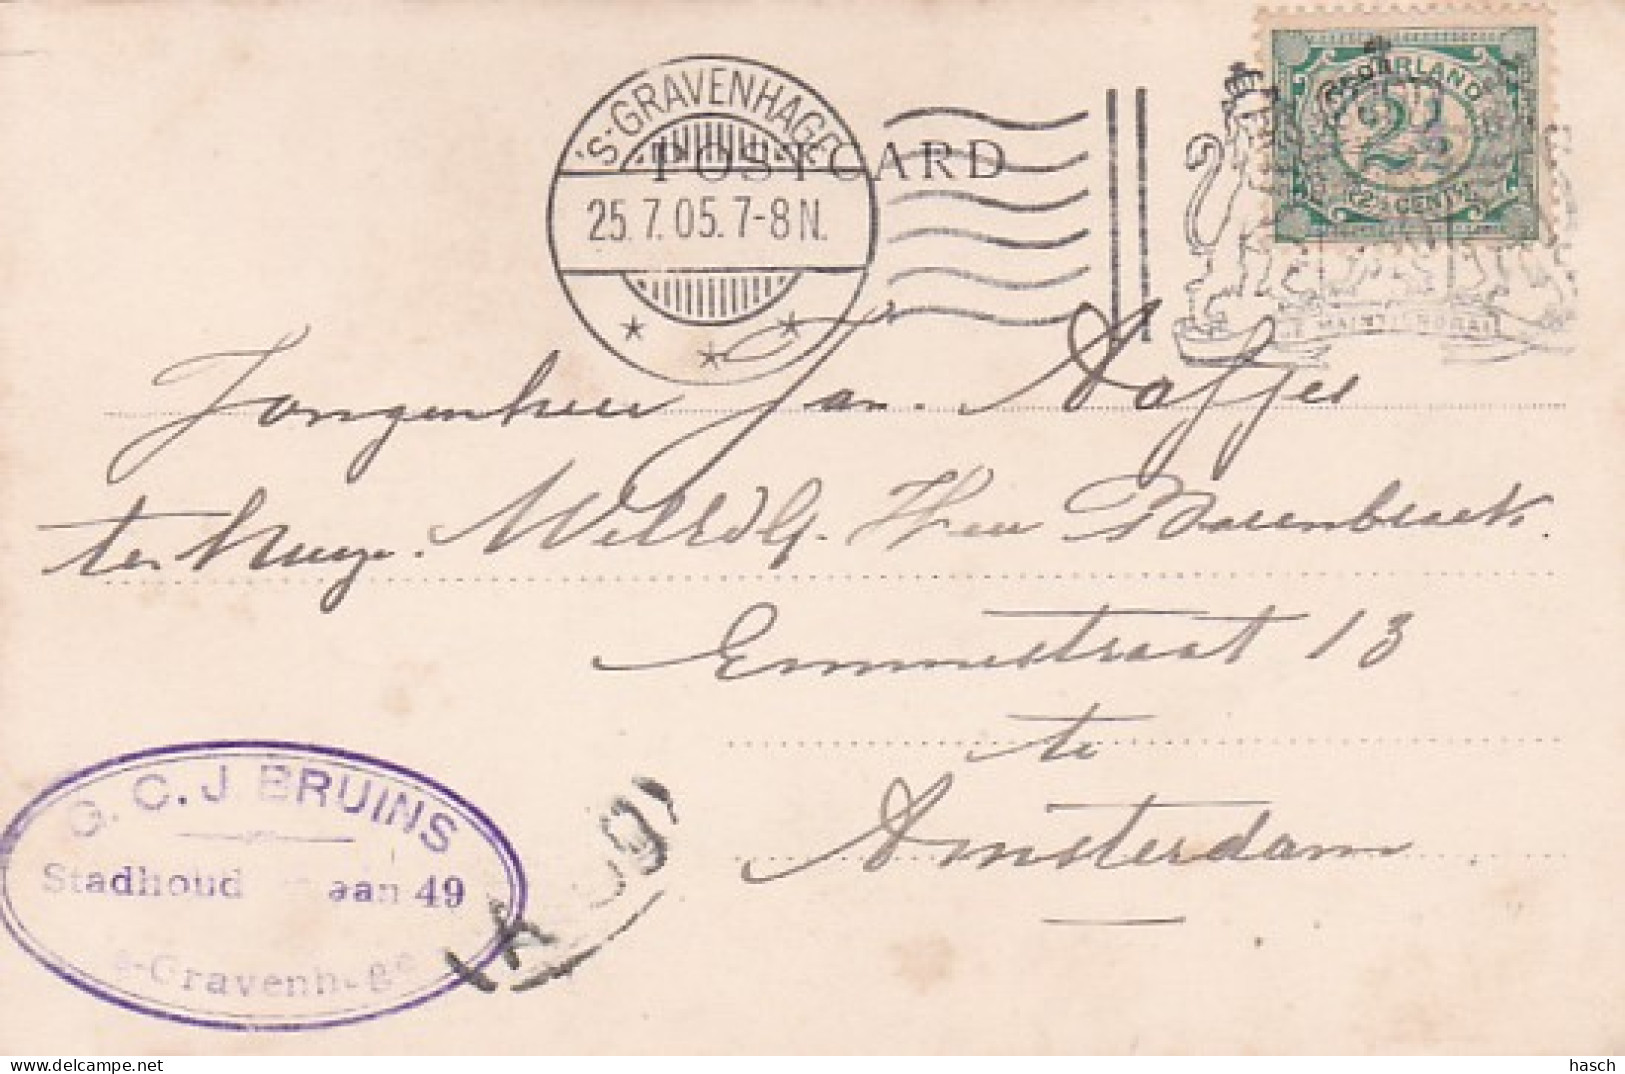 'S-GRAVENHAGE
POSTCARD
25.7.05.7-8N.
NEDERLAND
2½
2½ CENT
MAINTIENDRAI
Jongenheer Jan Aafjes
ter huize. WelEdG. Heer Barenbroek.
Emmastraat 13
te
Amsterdam
G. C. J BRUINS
Stadhoud aan 49
s-Gravenhage
hasch